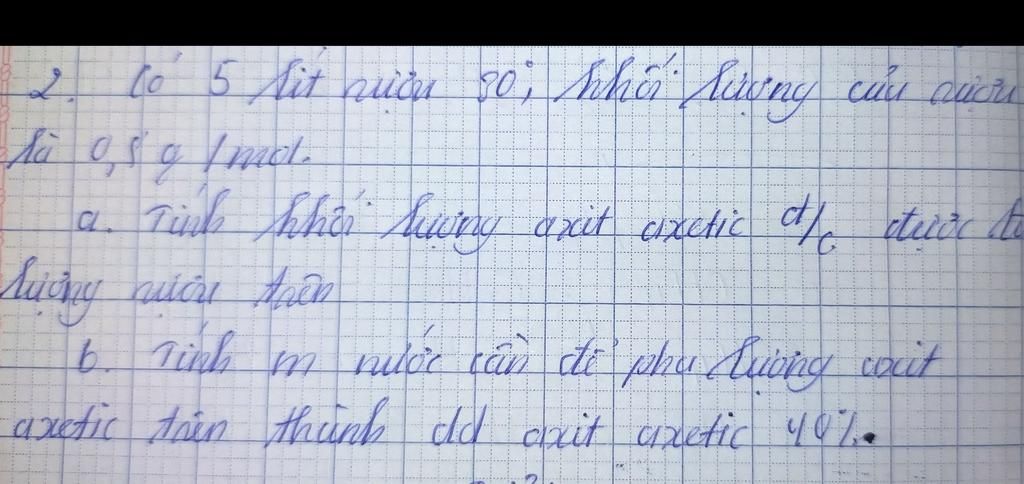 2. Có 5 lít rượu 30°, khối lượng của rượu
là 0,8 g / mol.
a. Tính khối lượng axit axetic đ/c được từ
lượng rượu trên
b. Tính m nước cần để pha lượng axit
axetic trên thành dd axit axetic 40%.